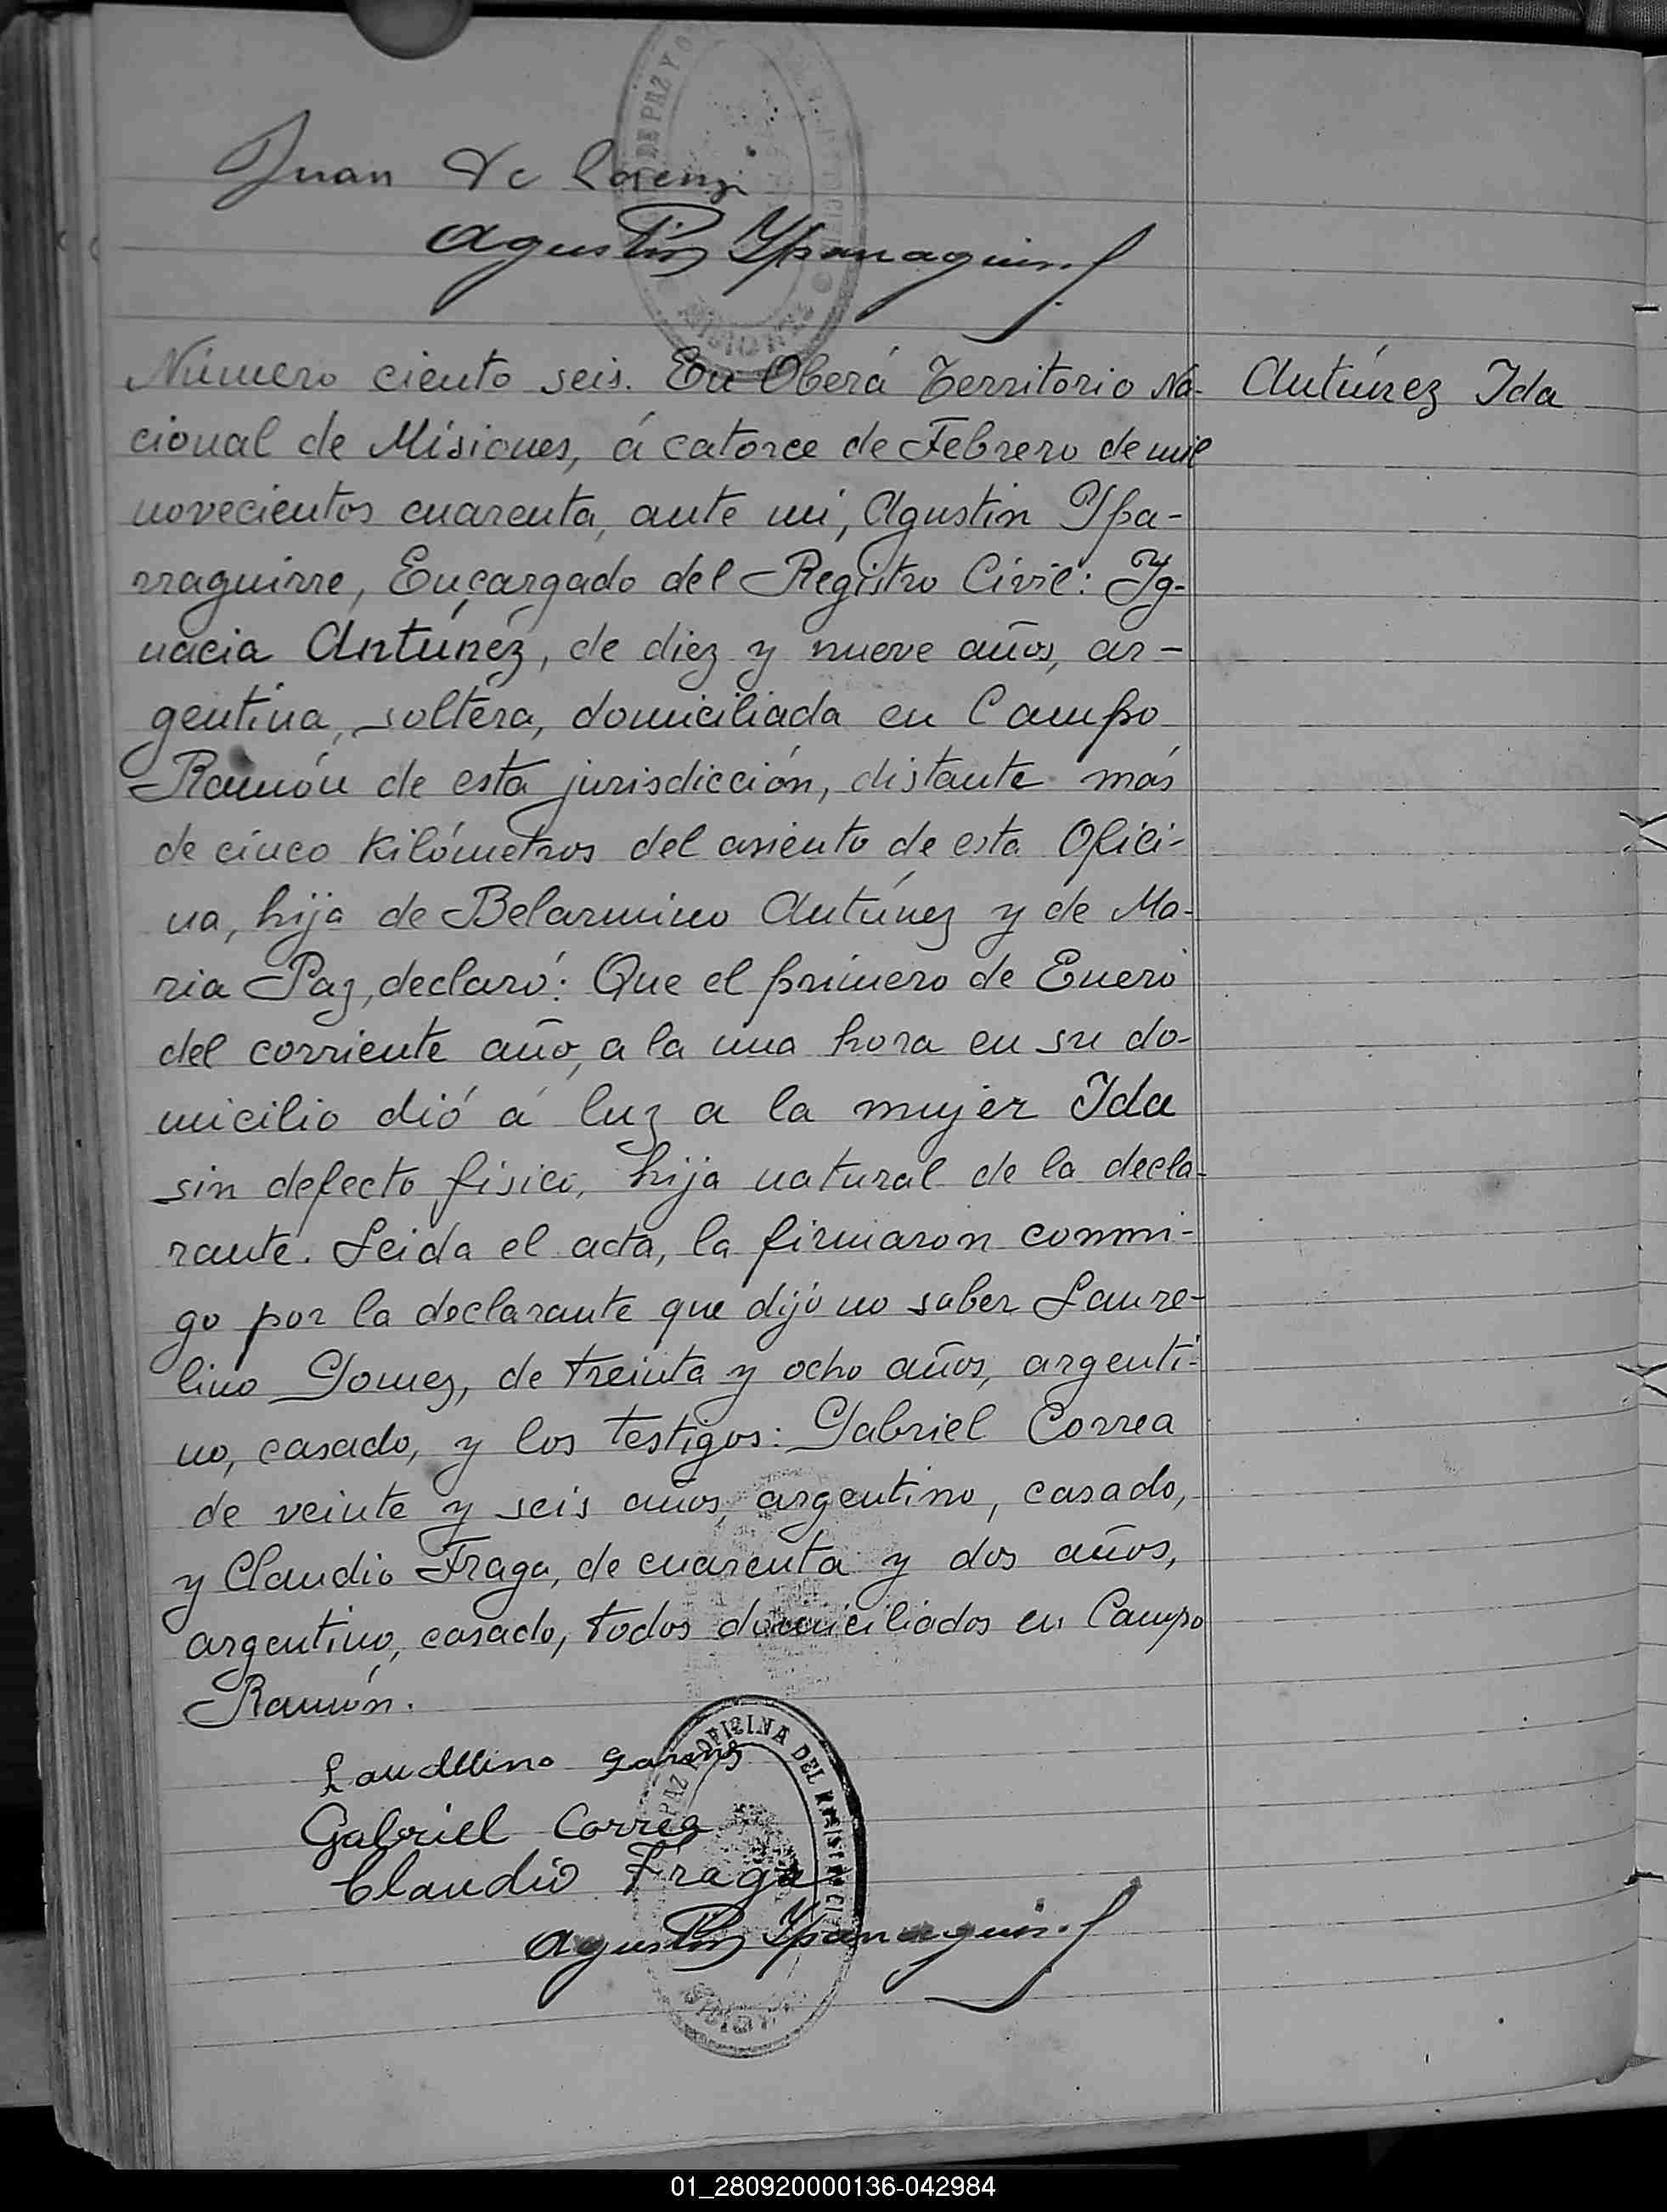 Juan De Lorenzi
Agustin Yparraguirre
Número ciento seis. En Oberá Territorio Na- Antúnez Ida
cional de Misiones, á catorce de Febrero de mil
novecientos cuarenta, ante mi, Agustin Ypa-
rraguirre, Encargado del Registro Civil: Ig-
nacia Antúnez, de diez y nueve años, ar-
gentina, soltera, domiciliada en Campo
Ramón de esta jurisdicción, distante más
de cinco Kilómetros del asiento de esta Ofici-
na, hija de Belarmino Antúnez y de Ma-
ria Paz, declaró: Que el primero de Enero
del corriente año, a la una hora en su do-
micilio dió á luz a la mujer Ida
sin defecto fisico, hija natural de la decla-
rante. Leida el acta, la firmaron conmi-
go por la declarante que dijo no saber Laure-
lino Gomez, de treinta y ocho años, argenti-
no, casado, y los testigos: Gabriel Correa
de veinte y seis años, argentino, casado,
y Claudio Fraga, de cuarenta y dos años,
argentino, casado, todos domiciliados en Campo
Ramón.
Gabriel Correa
Claudio Fraga
Agustin Yparraguirre
OFICINA DEL REGISTRO CIVIL
MISIONES
01_280920000136-042984